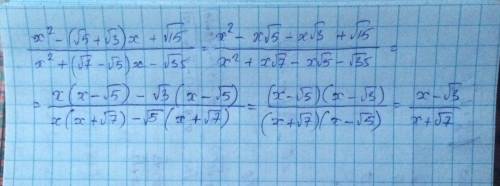 (x² - (√5 + √3)x + √15) / (x² + (√7 - √5)x - √35) = (x² - x√5 - x√3 + √15) / (x² + x√7 - x√5 - √35) =
= (x(x - √5) - √3(x - √5)) / (x(x + √7) - √5(x + √7)) = ((x - √5)(x - √3)) / ((x + √7)(x - √5)) = (x - √3) / (x + √7)